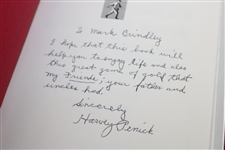 To Mark Brindley
I hope that this book will
help you to enjoy life and also
this great game of golf that
my friends, your father and
uncles had.
Sincerely
Harvey Penick